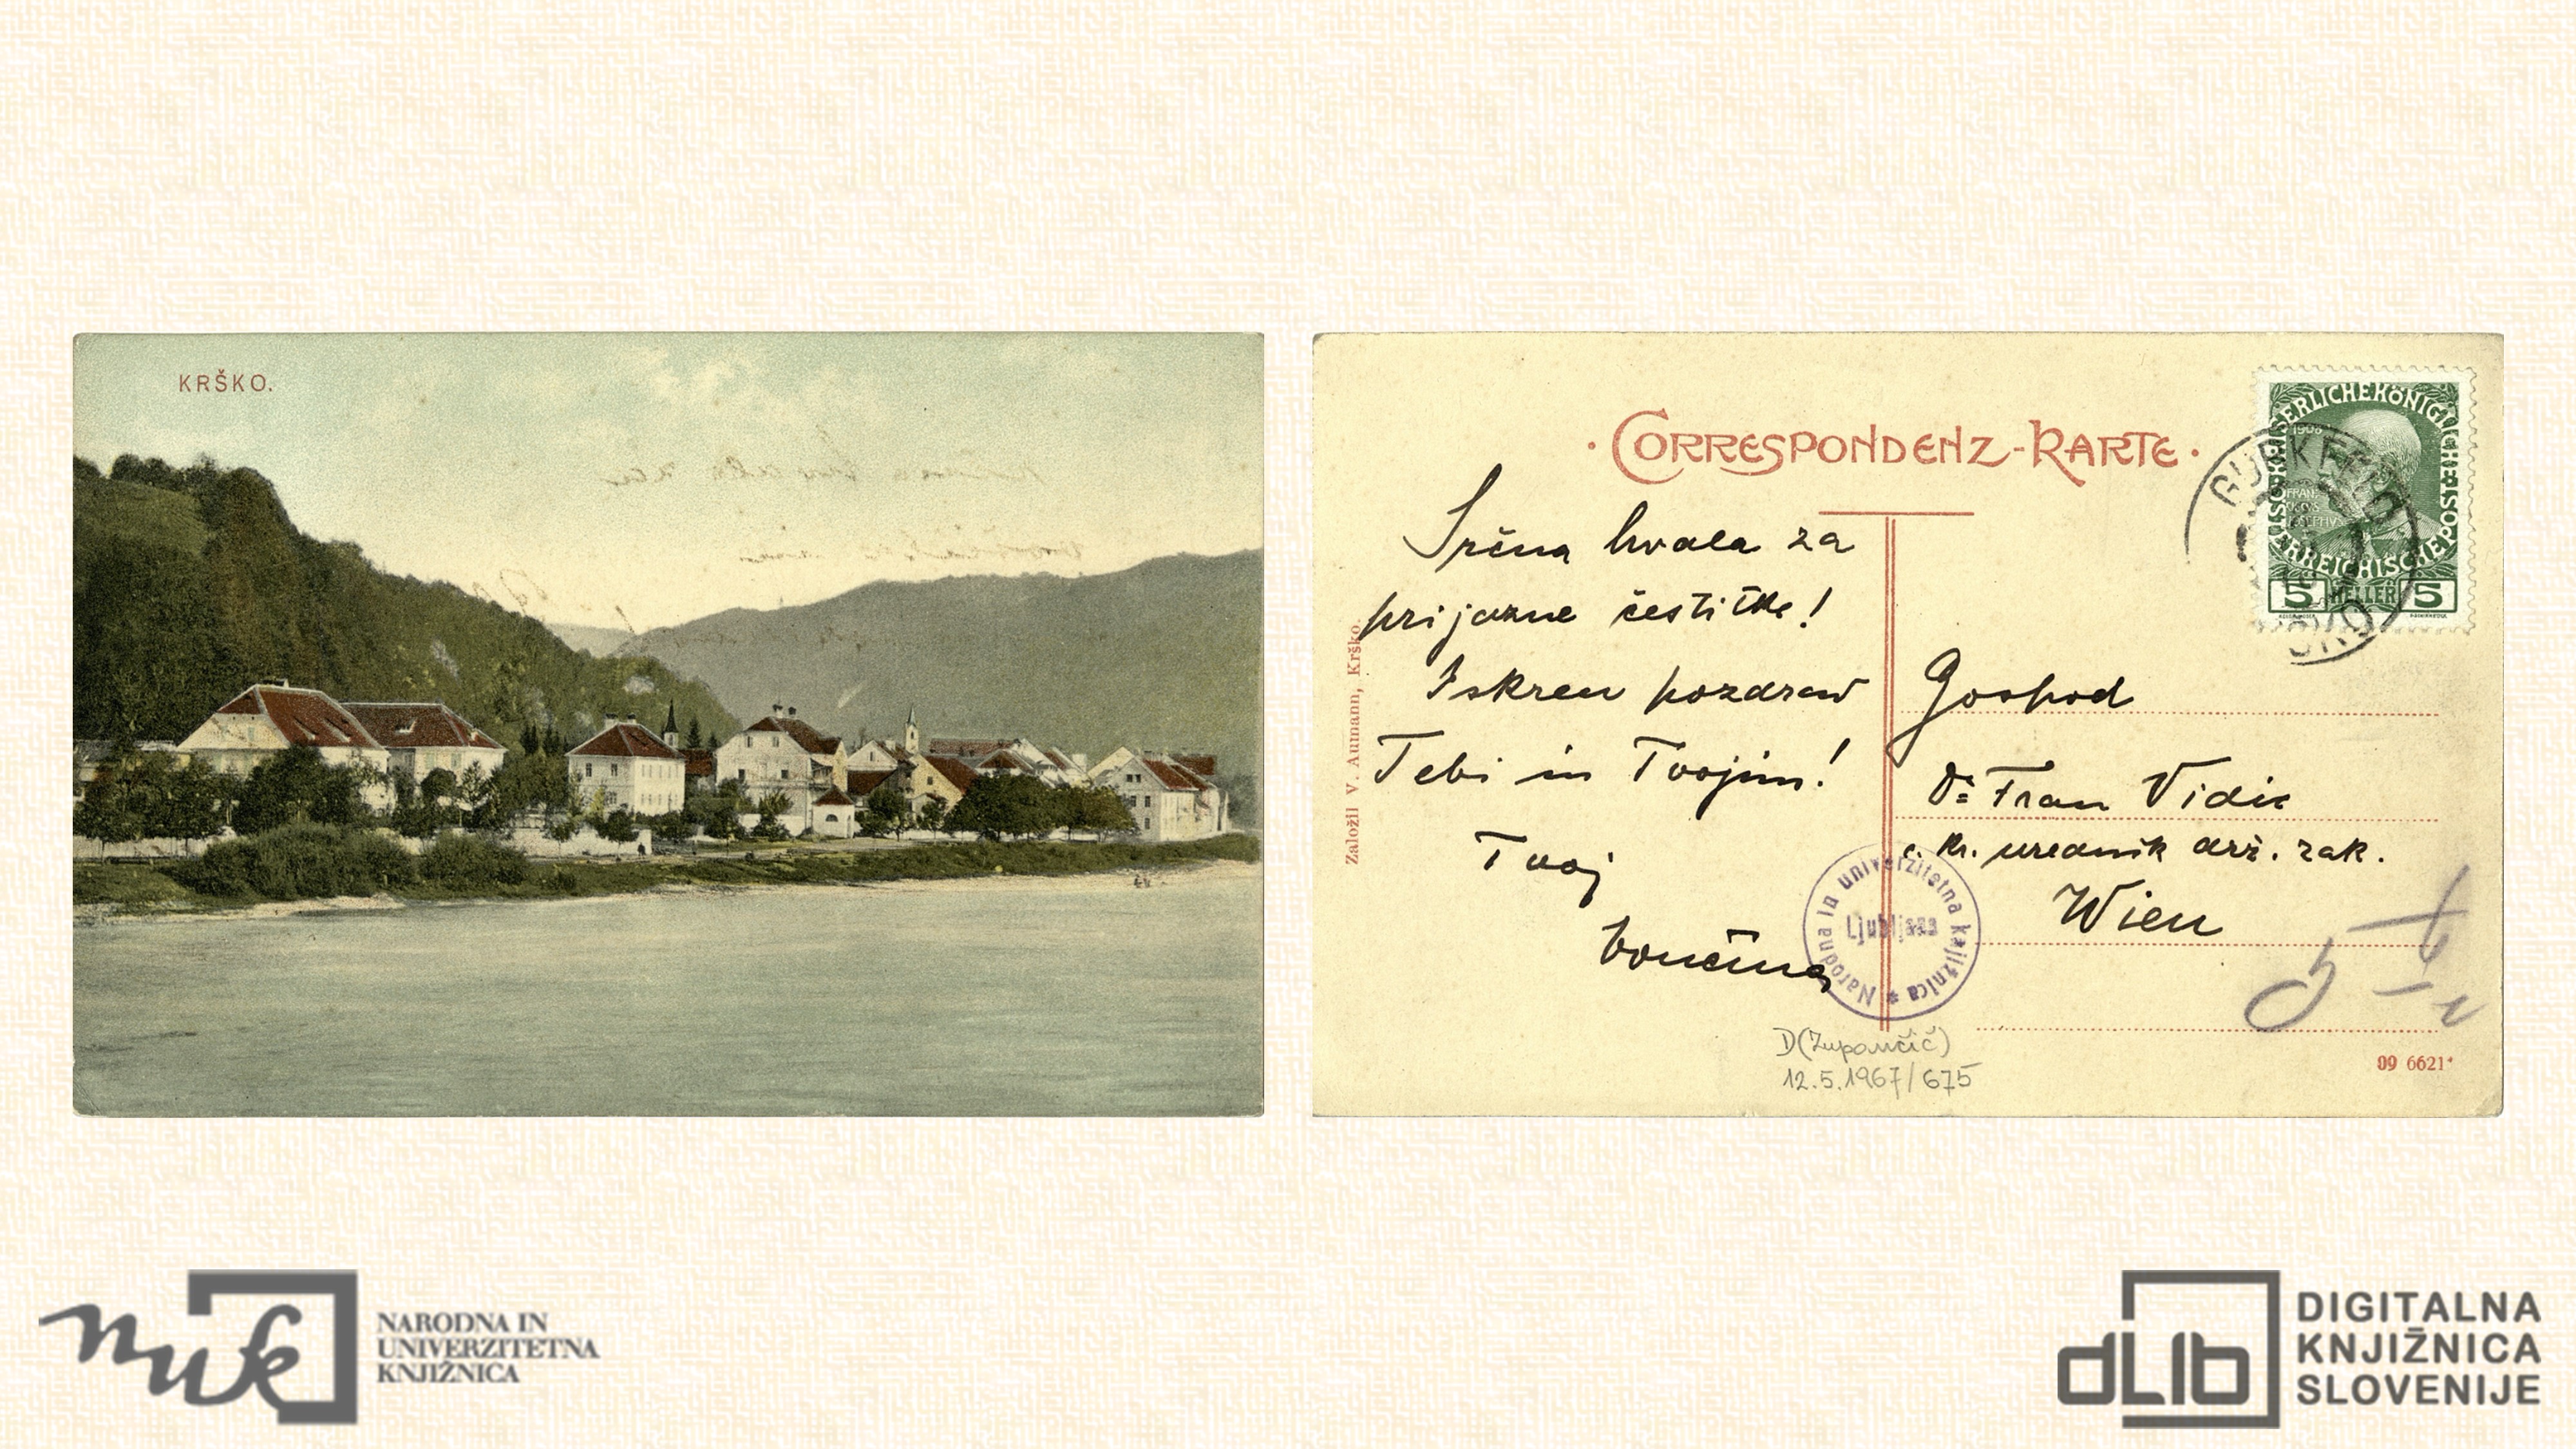 KRŠKO.
CORRESPONDENZ-KARTE
Srčna hvala za
prijazne čestitke!
Iskren pozdrav
Tebi in Tvojim!
Tvoj
Vončina
Založil V. Aumann, Krško.
KAISERLICHEKÖNIGLICHE
ÖSTERREICHISCHEPOST
1908
5 HELLER 5
GURKFELD
Gospod
Dr Fran Vidic
c. kr. urednik drž. zak.
Wien
Narodna in univerzitetna knjižnica *
Ljubljana
D(Zupančič)
12.5.1967/675
09 6621*
nuk
NARODNA IN
UNIVERZITETNA
KNJIŽNICA
dLib
DIGITALNA
KNJIŽNICA
SLOVENIJE